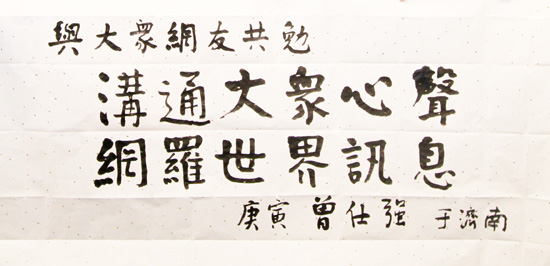 與大眾網友共勉
溝通大眾心聲
網羅世界訊息
庚寅 曾仕强 于濟南